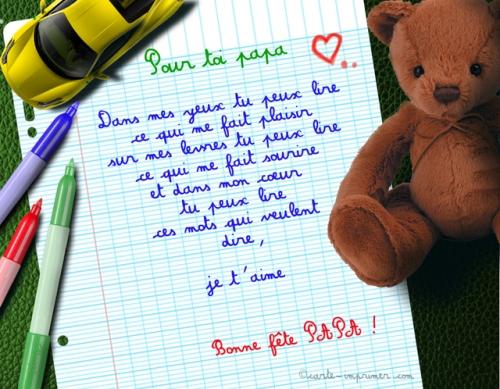 Pour toi papa
Dans mes yeux tu peux lire
ce qui me fait plaisir
sur mes levres tu peux lire
ce qui me fait sourire
et dans mon cœur
tu peux lire
ces mots qui veulent
dire,
je t'aime
Bonne fête PAPA !
©carte-imprimer.com